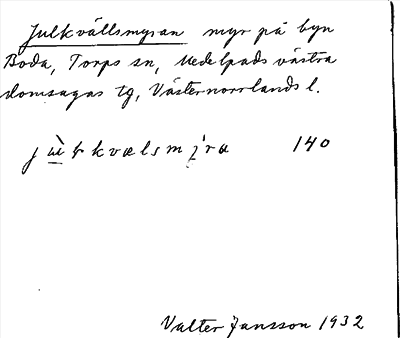 Julkvällsmyran myr på byn
Boda, Torps sn, Medelpads västra
domsagas tg, Västernorrlands l.
140
Valter Jansson 1932